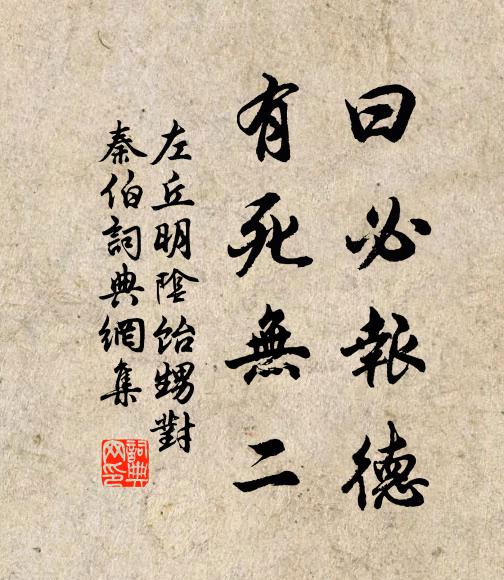 曰必報德
有死無二
左丘明陰飴甥對
秦伯詞典網集
詞典
网印